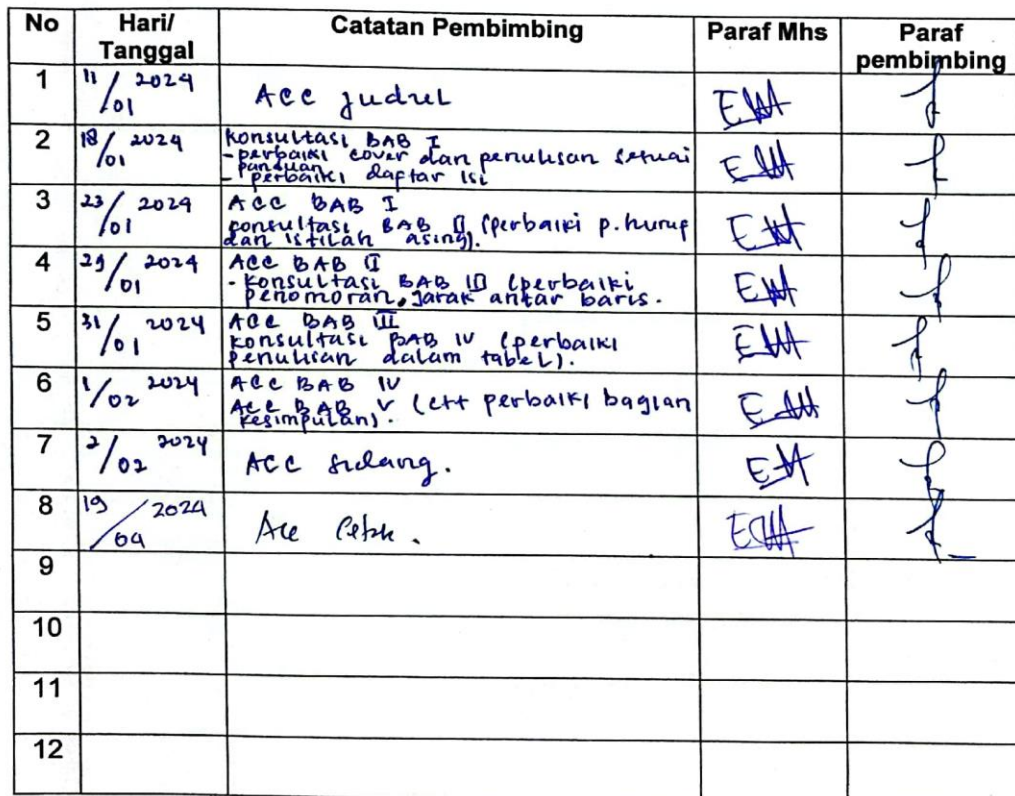 No Hari/ Tanggal Catatan Pembimbing Paraf Mhs Paraf pembimbing
1 11/01 2024 ACC judul
2 18/01 2024 Konsultasi BAB I
- perbaiki cover dan penulisan sesuai
panduan
- perbaiki daftar isi
3 23/01 2024 ACC BAB I
konsultasi BAB II (perbaiki p. huruf
dan istilah asing).
4 29/01 2024 ACC BAB II
- Konsultasi BAB III (perbaiki
penomoran, jarak antar baris.
5 31/01 2024 ACC BAB III
konsultasi BAB IV (perbaiki
penulisan dalam tabel).
6 1/02 2024 ACC BAB IV
ACC BAB V (ctt perbaiki bagian
kesimpulan).
7 2/02 2024 ACC sidang.
8 19/04 2024 Acc Cetak.
9
10
11
12